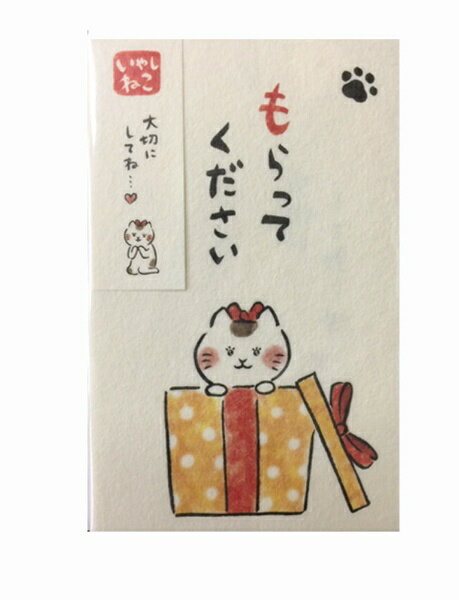 もらって
ください
いやし
ねこ
大切に
してね…♥